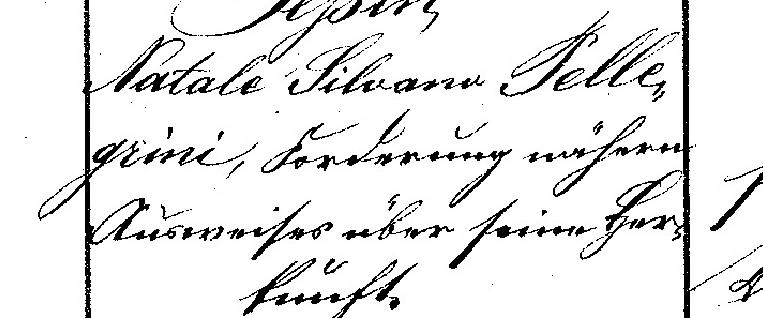 Tessin,
Natale Silvano Pelle-
grini, Forderung nähern
Ausweises über seine Her-
kunft.